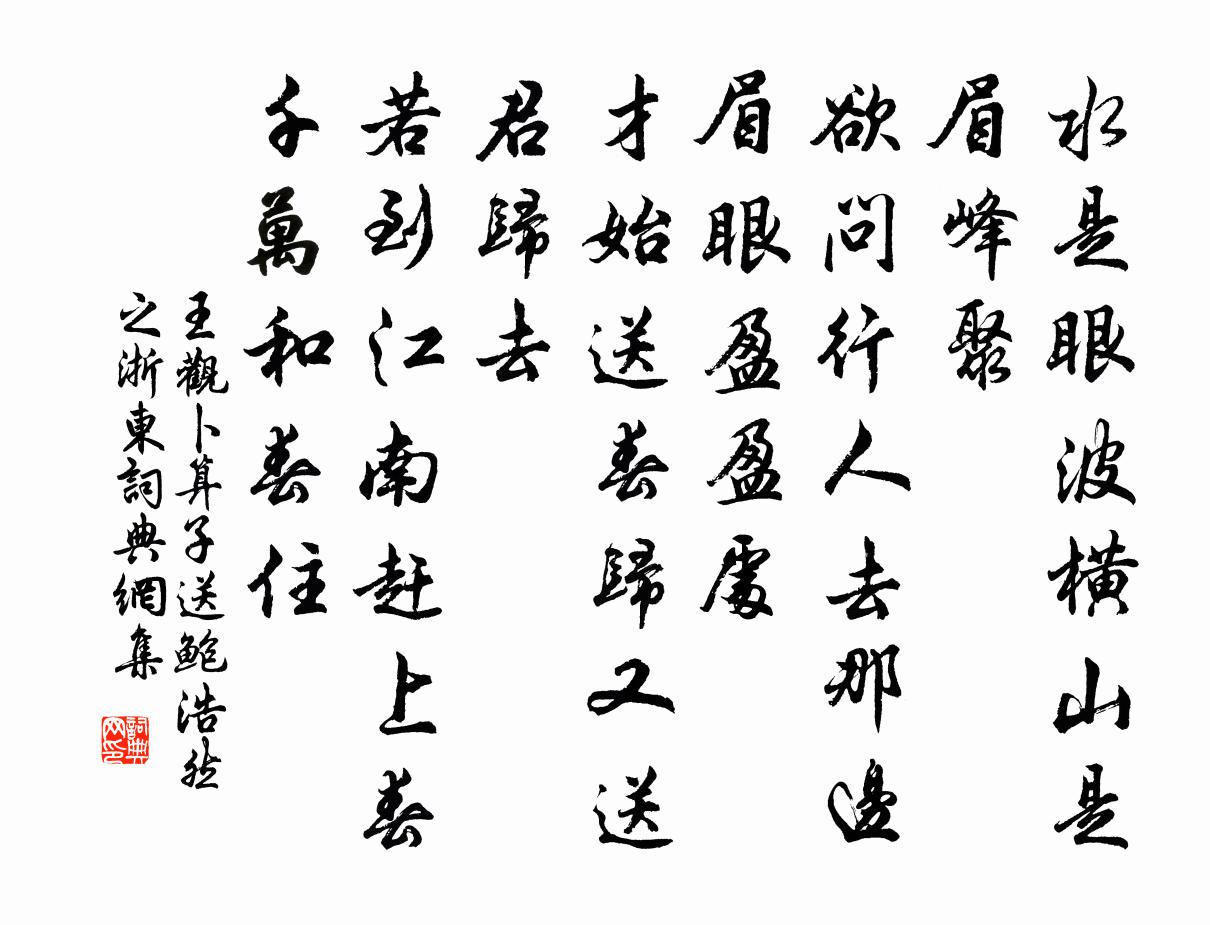 水是眼波橫山是
眉峰聚
欲問行人去那邊
眉眼盈盈處
才始送春歸又送
君歸去
若到江南赶上春
千萬和春住
王觀卜算子送鲍浩然
之浙東詞典網集
詞典网印